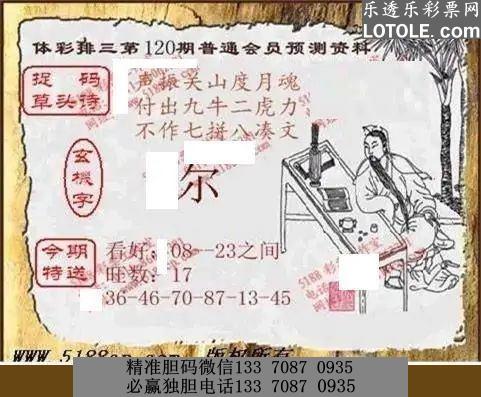 乐透乐彩票网
LOTOLE.COM
体彩排三第120期普通会员预测资料
捉码
草头诗
海关山度月魂
付出九牛二虎力
不作七拼八凑文
玄機字
尔
今期
特送
看好:08--23之间
旺数:17
36-46-70-87-13-45
精准胆码微信133 7087 0935
必赢独胆电话133 7087 0935